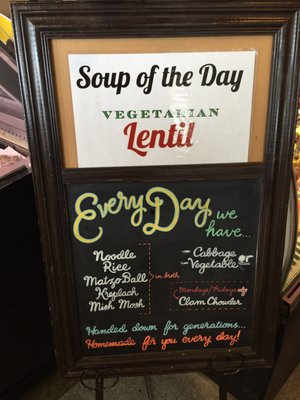 Soup of the Day
VEGETARIAN
Lentil
Every Day we
have...
Noodle
Rice
Matzo Ball
Kreplach
Mish Mosh
in broth
Cabbage
Vegetable
Mondays/Fridays
Clam Chowder
Handed down for generations...
Homemade for you every day!